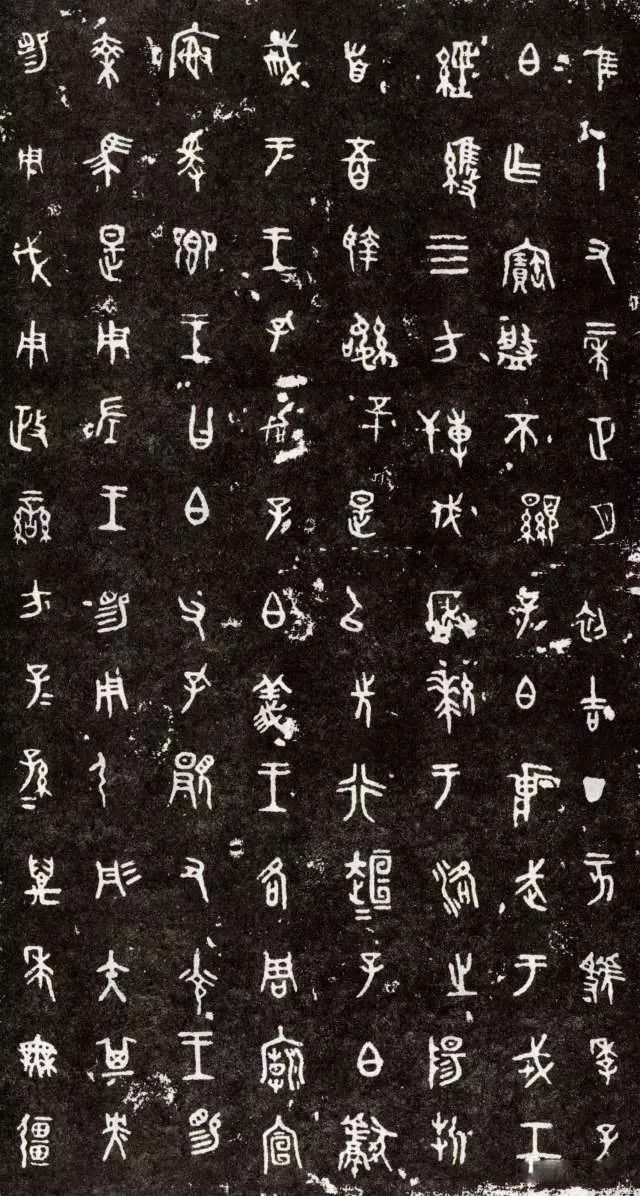 隹十又二年正月初吉丁亥虢季子
白乍寶盤不顯子白壯武于戎工
經維四方搏伐玁狁于洛之陽折
首五百執訊五十是以先行桓桓子白獻
馘于王王孔加子白義王各周廟宣
榭爰鄉王曰白父孔顯又光王賜
乘馬是用左王賜用弓彤矢其央
賜用戉用政蠻方子子孫孫萬年無疆